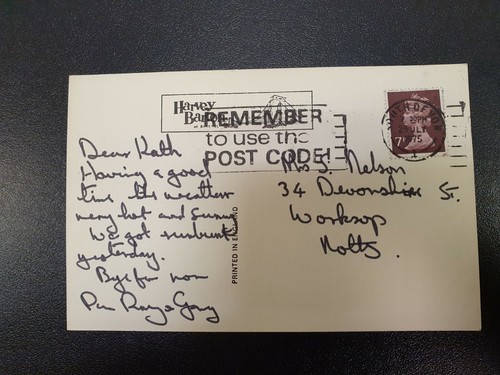 Harvey
Barton
REMEMBER
to use the
POST CODE!
SOUTH DEVON
PM
JLY
1975
7
Dear Kath
Having a good
time the weather
very hot and sunny
We got sunburnt
yesterday.
Bye for now
Pam Ray & Gary
PRINTED IN ENGLAND
Mrs J. Nelson
34 Devonshire St.
Worksop
Notts.